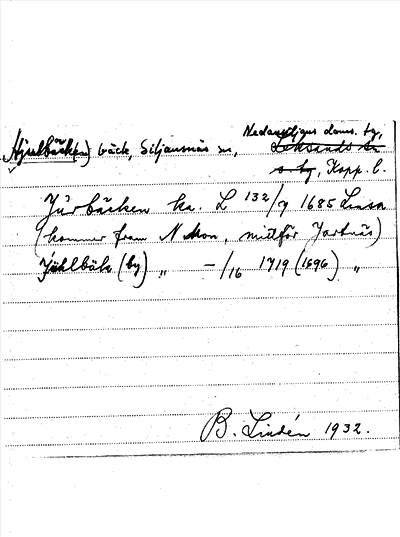 Hjulbäck(en) bäck, Siljansnäs sn, Nedansiljans doms. tg,
Leksands tg, Kopp. l.
Jurbäcken ka. L 132/7 1685 Lmsn
(kommer från N mon, mittför Jortnäs)
Jühlbäk (by) „ -/16 1719 (1696) „
B. Lindén 1932.